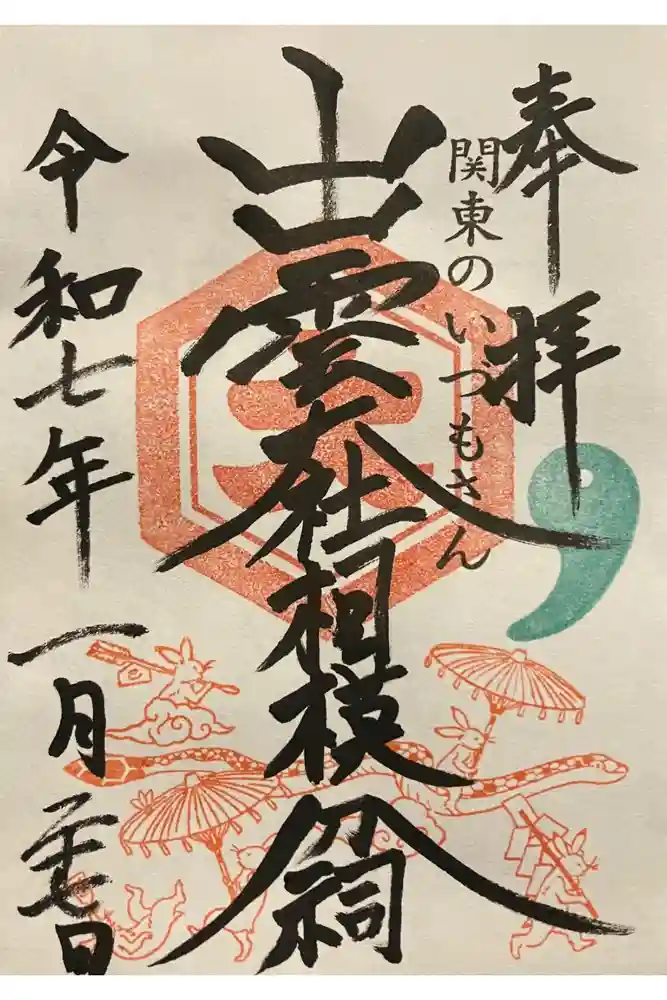 奉拝
関東のいつもさん
出雲大社相模分祠
令和七年一月二十七日